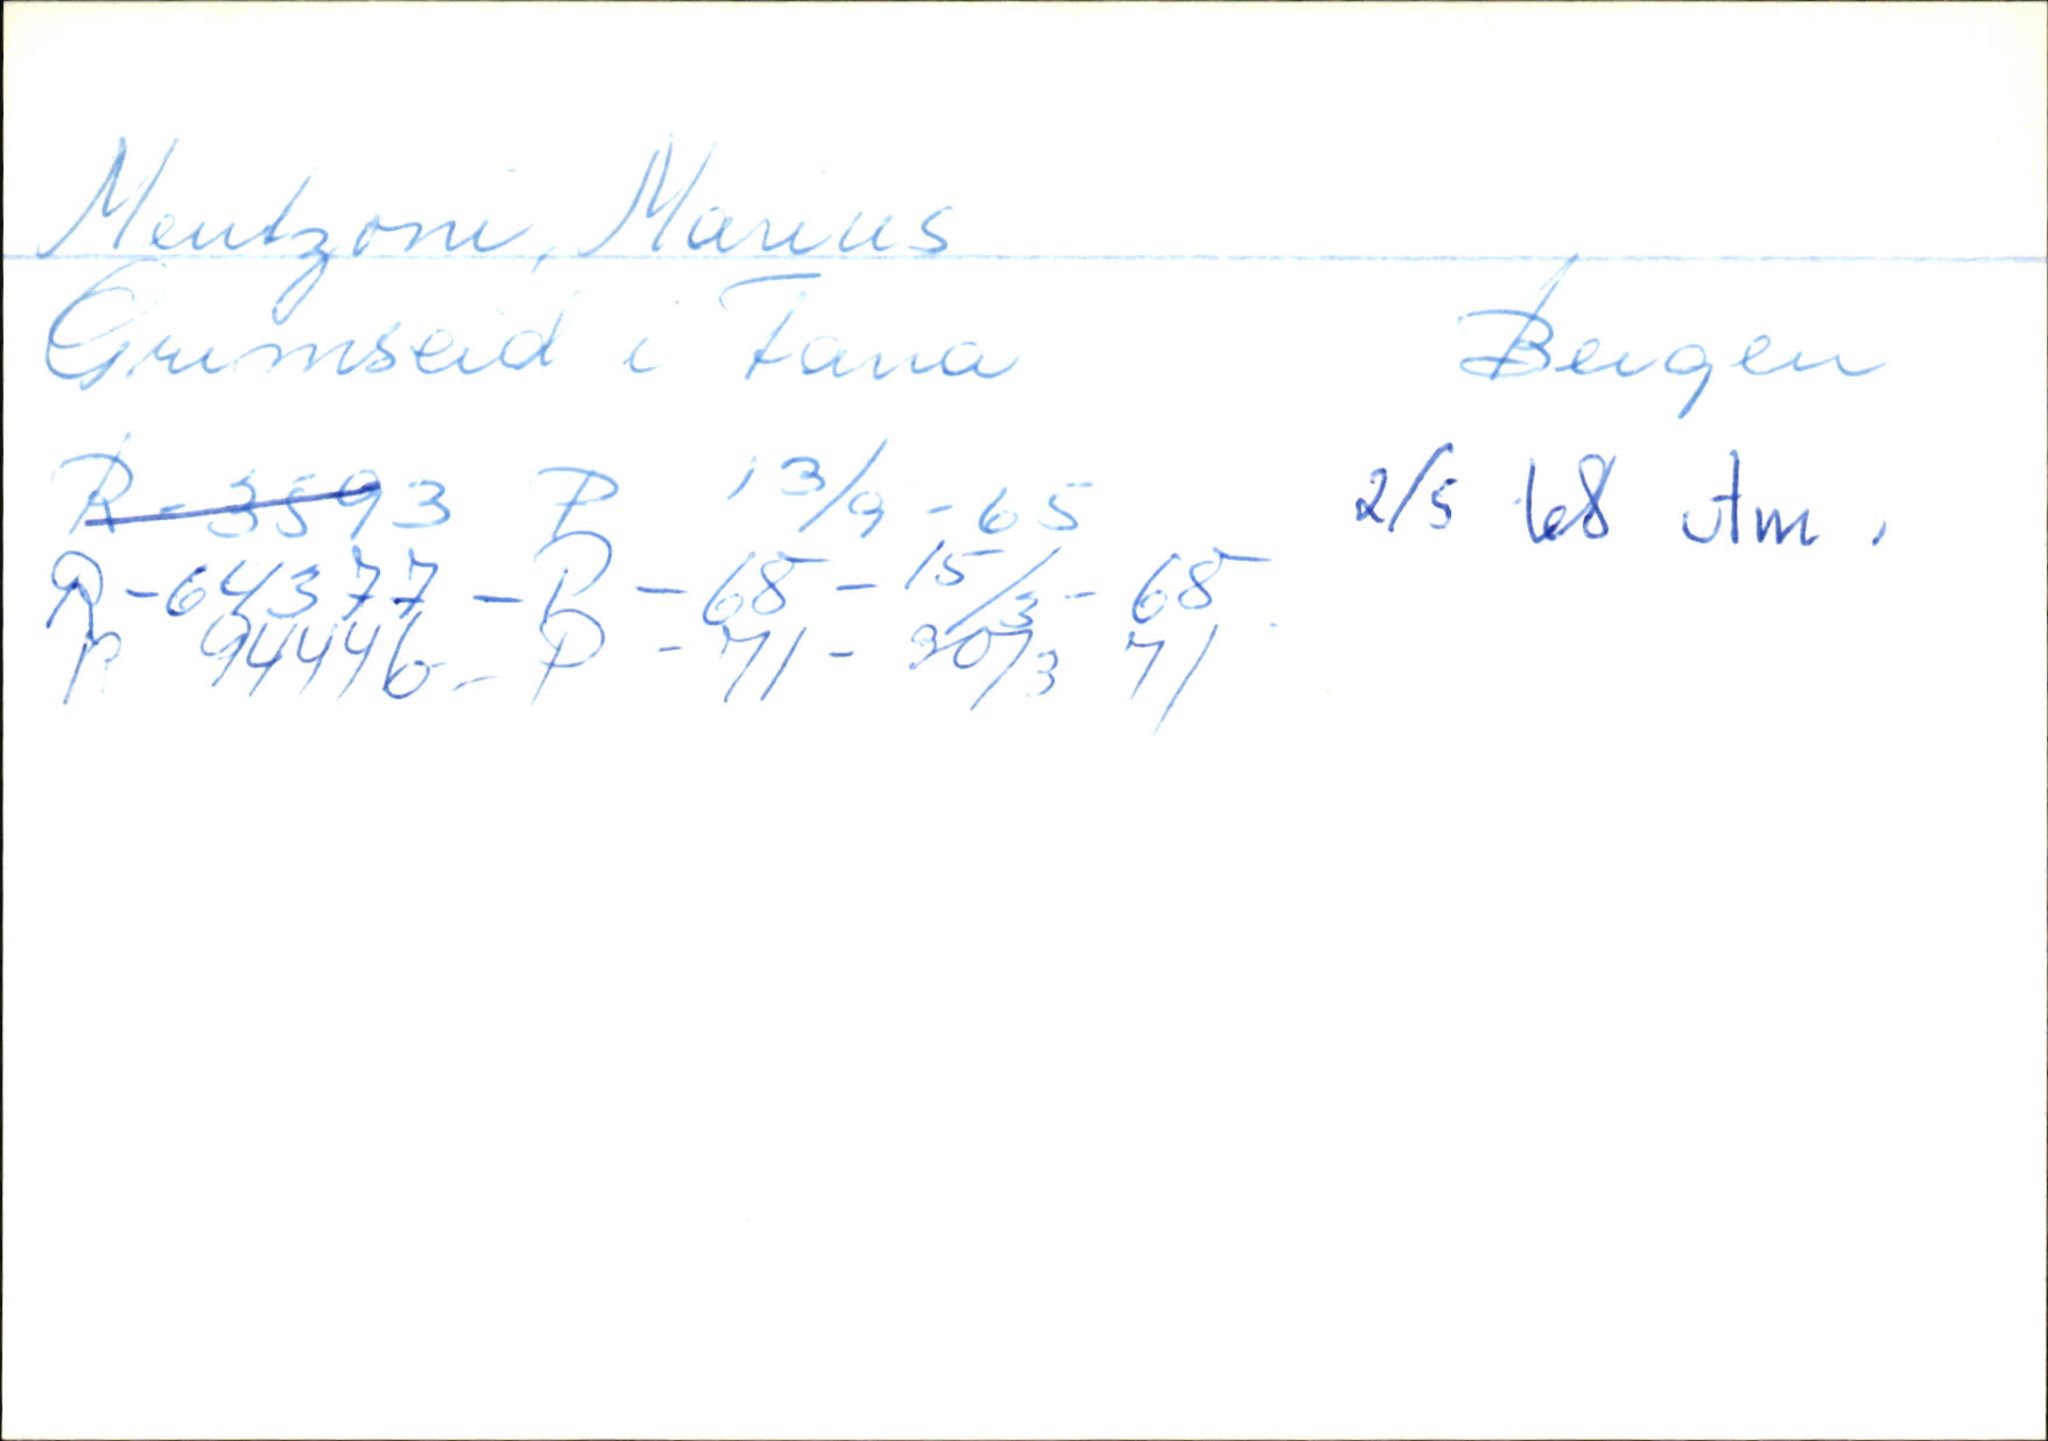 Mentzoni, Marius
Grimseid i Fana Bergen
R - 3593 P 13/9 - 65 2/5 68 Am.
R - 64377 - P - 68 - 15/3 - 68
R 94446 - P - 71 - 30/3 71